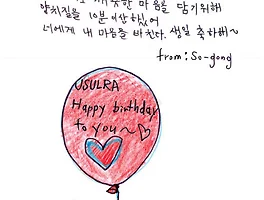 깨끗한 마음을 담기위해
양치질을 10분 이상 했어
너에게 내 마음을 바친다. 생일 축하해~
from: So-gong
USULRA
Happy birthday
to you~